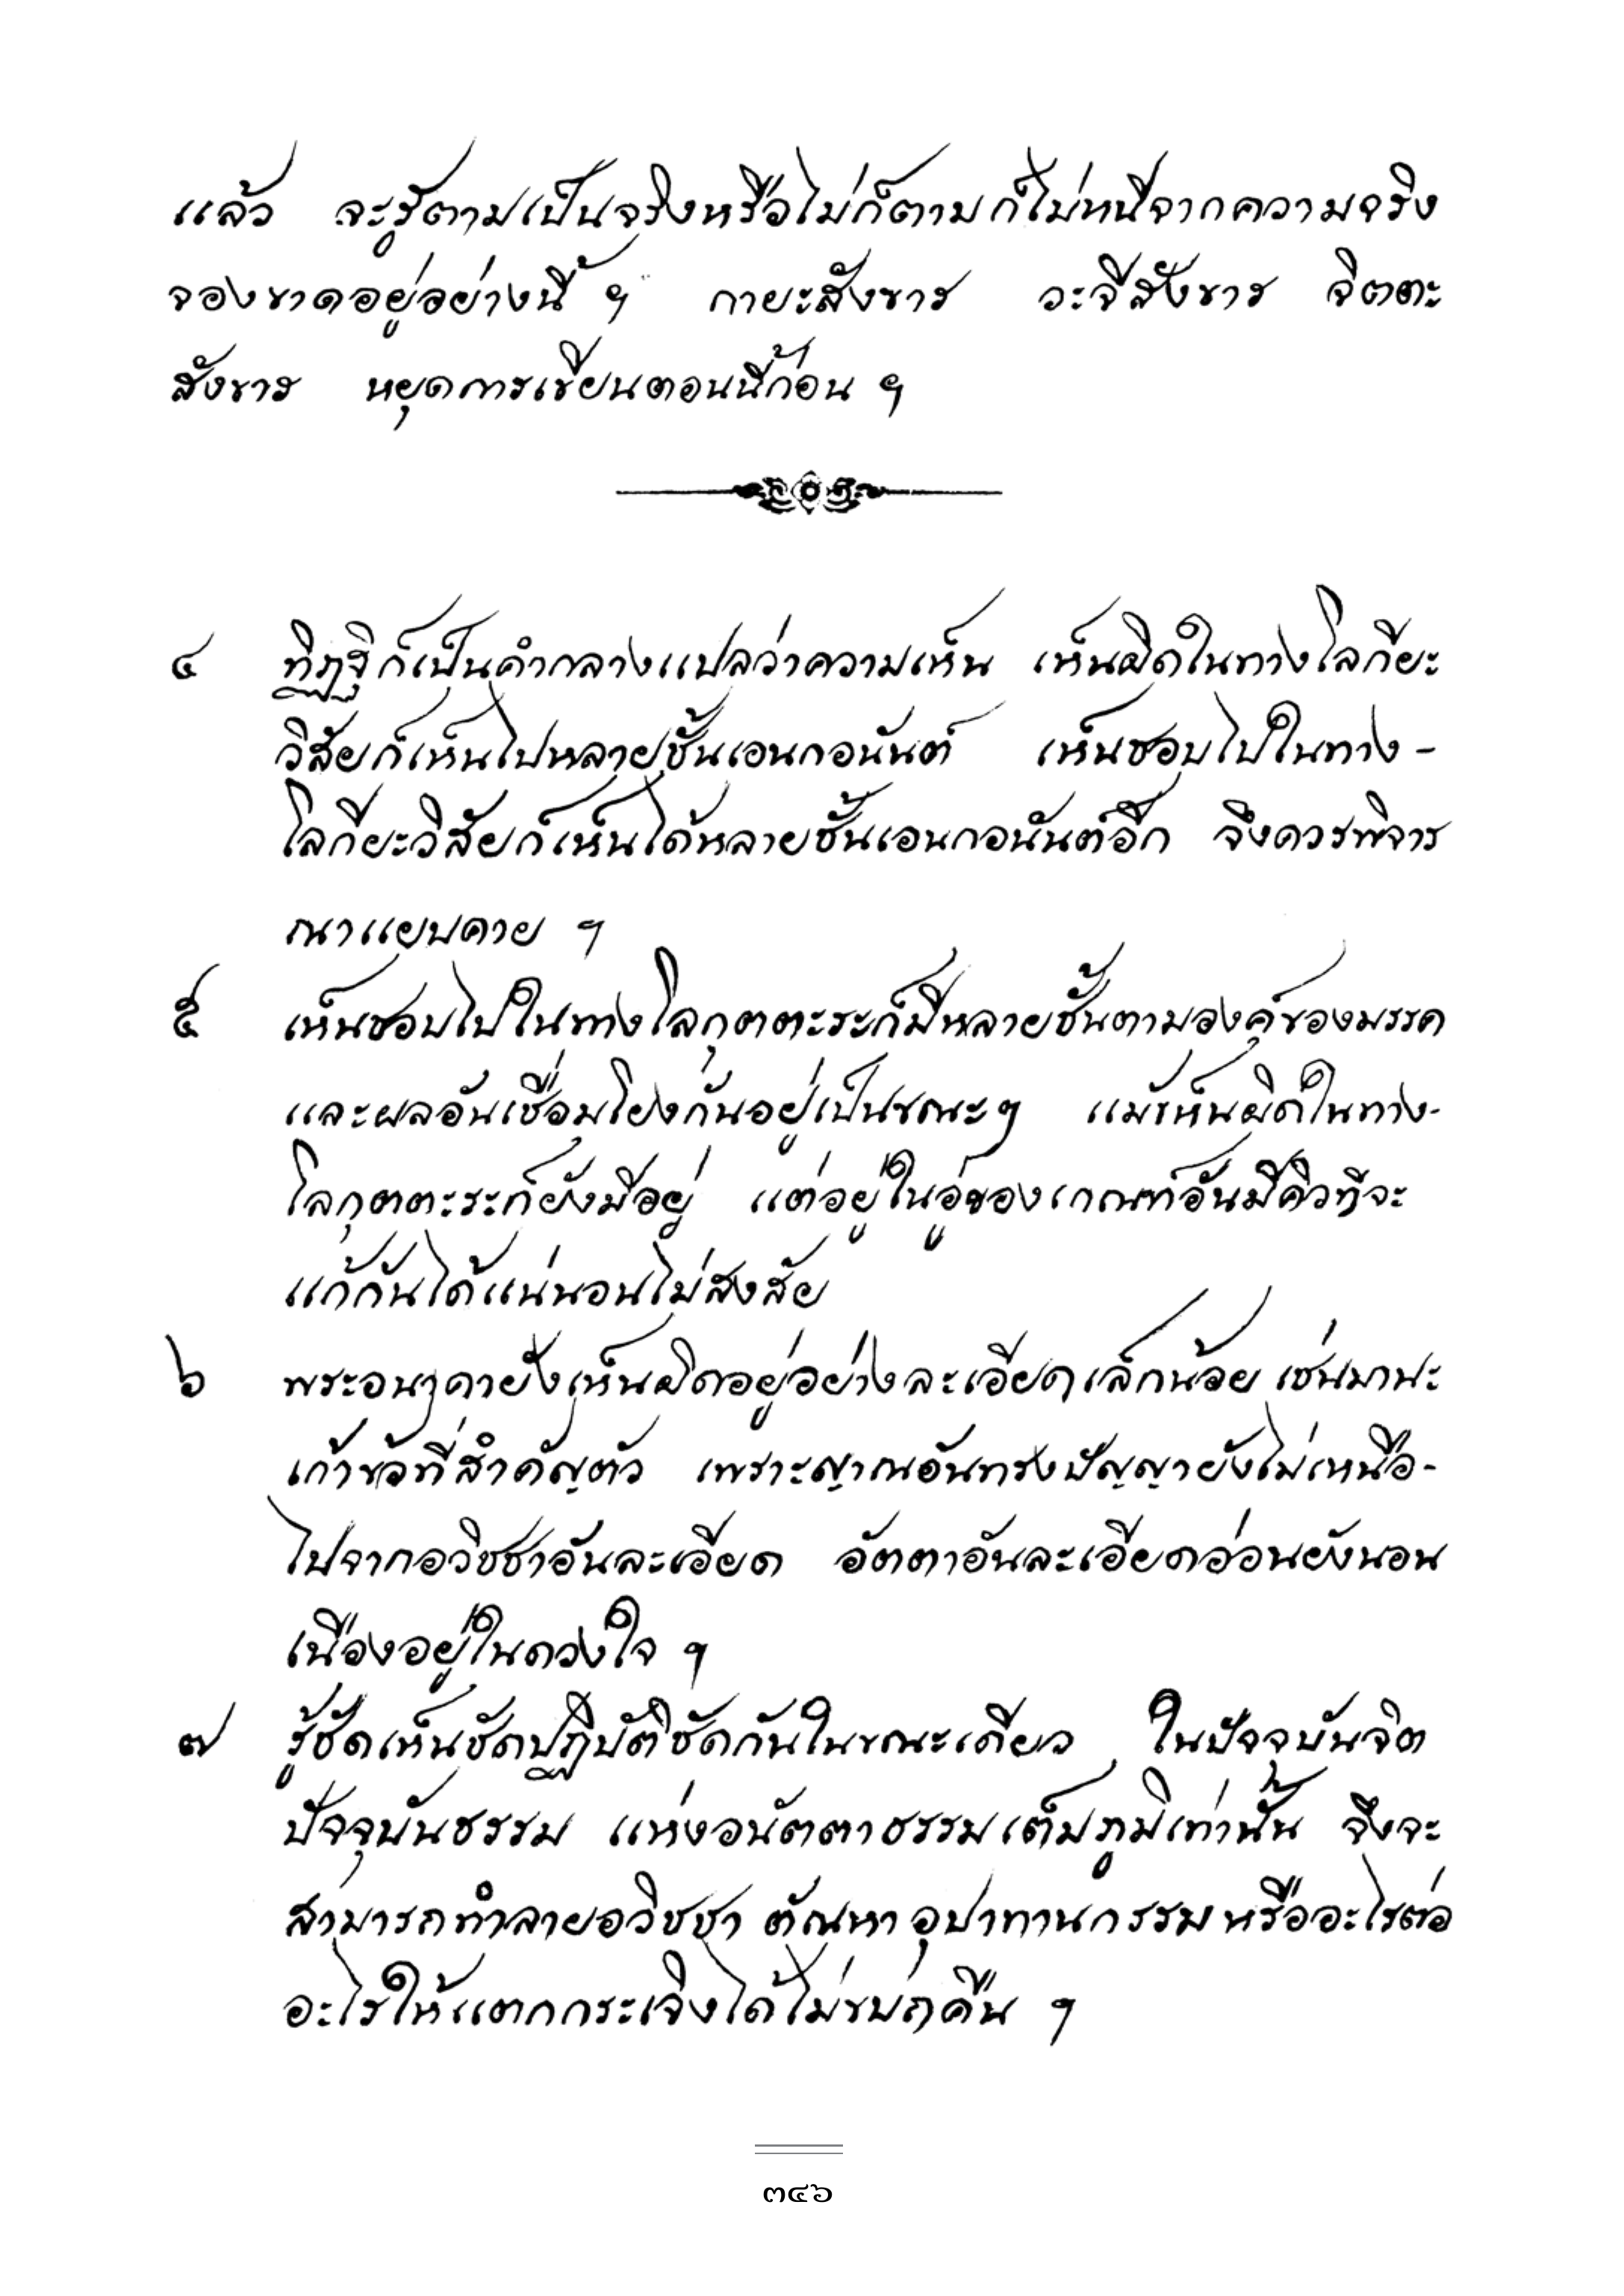 แล้ว จะรู้ตามเป็นจริงหรือไม่ก็ตามก็ไม่หนีจากความจริง
จองขาดอยู่อย่างนี้ ฯ กายะสังขาร วะจีสังขาร จิตตะ
สังขาร หยุดการเขียนตอนนี้ก่อน ฯ
๔ ทิฏฐิก็เป็นคำกลางแปลว่าความเห็น เห็นผิดในทางโลกียะ
วิสัยก็เห็นไปหลายชั้นเอนกอนันต์ เห็นชอบไปในทาง -
โลกียะวิสัยก็เห็นได้หลายชั้นเอนกอนันต์อีก จึงควรพิจาร
ณาแยบคาย ฯ
๕ เห็นชอบไปในทางโลกุตตะระก็มีหลายชั้นตามองค์ของมรรค
และผลอันเชื่อมโยงกันอยู่เป็นขณะๆ แม้เห็นผิดในทาง-
โลกุตตะระก็ยังมีอยู่ แต่อยู่ในอู่ของเกณฑ์อันมีคิวที่จะ
แก้กันได้แน่นอนไม่สงสัย
๖ พระอนาคายังเห็นผิดอยู่อย่างละเอียดเล็กน้อย เช่นมานะ
เก้าข้อที่สำคัญตัว เพราะญาณอันทรงปัญญายังไม่เหนือ-
ไปจากอวิชชาอันละเอียด อัตตาอันละเอียดอ่อนยังนอน
เนื่องอยู่ในดวงใจ ฯ
๗ รู้ชัดเห็นชัดปฏิบัติชัดกันในขณะเดียว ในปัจจุบันจิต
ปัจจุบันธรรม แห่งอนัตตาธรรมเต็มภูมิเท่านั้น จึงจะ
สามารถทำลายอวิชชา ตัณหา อุปาทานกรรม หรืออะไรต่อ
อะไรให้แตกกระเจิงได้ไม่ขบถคืน ฯ
๓๔๖